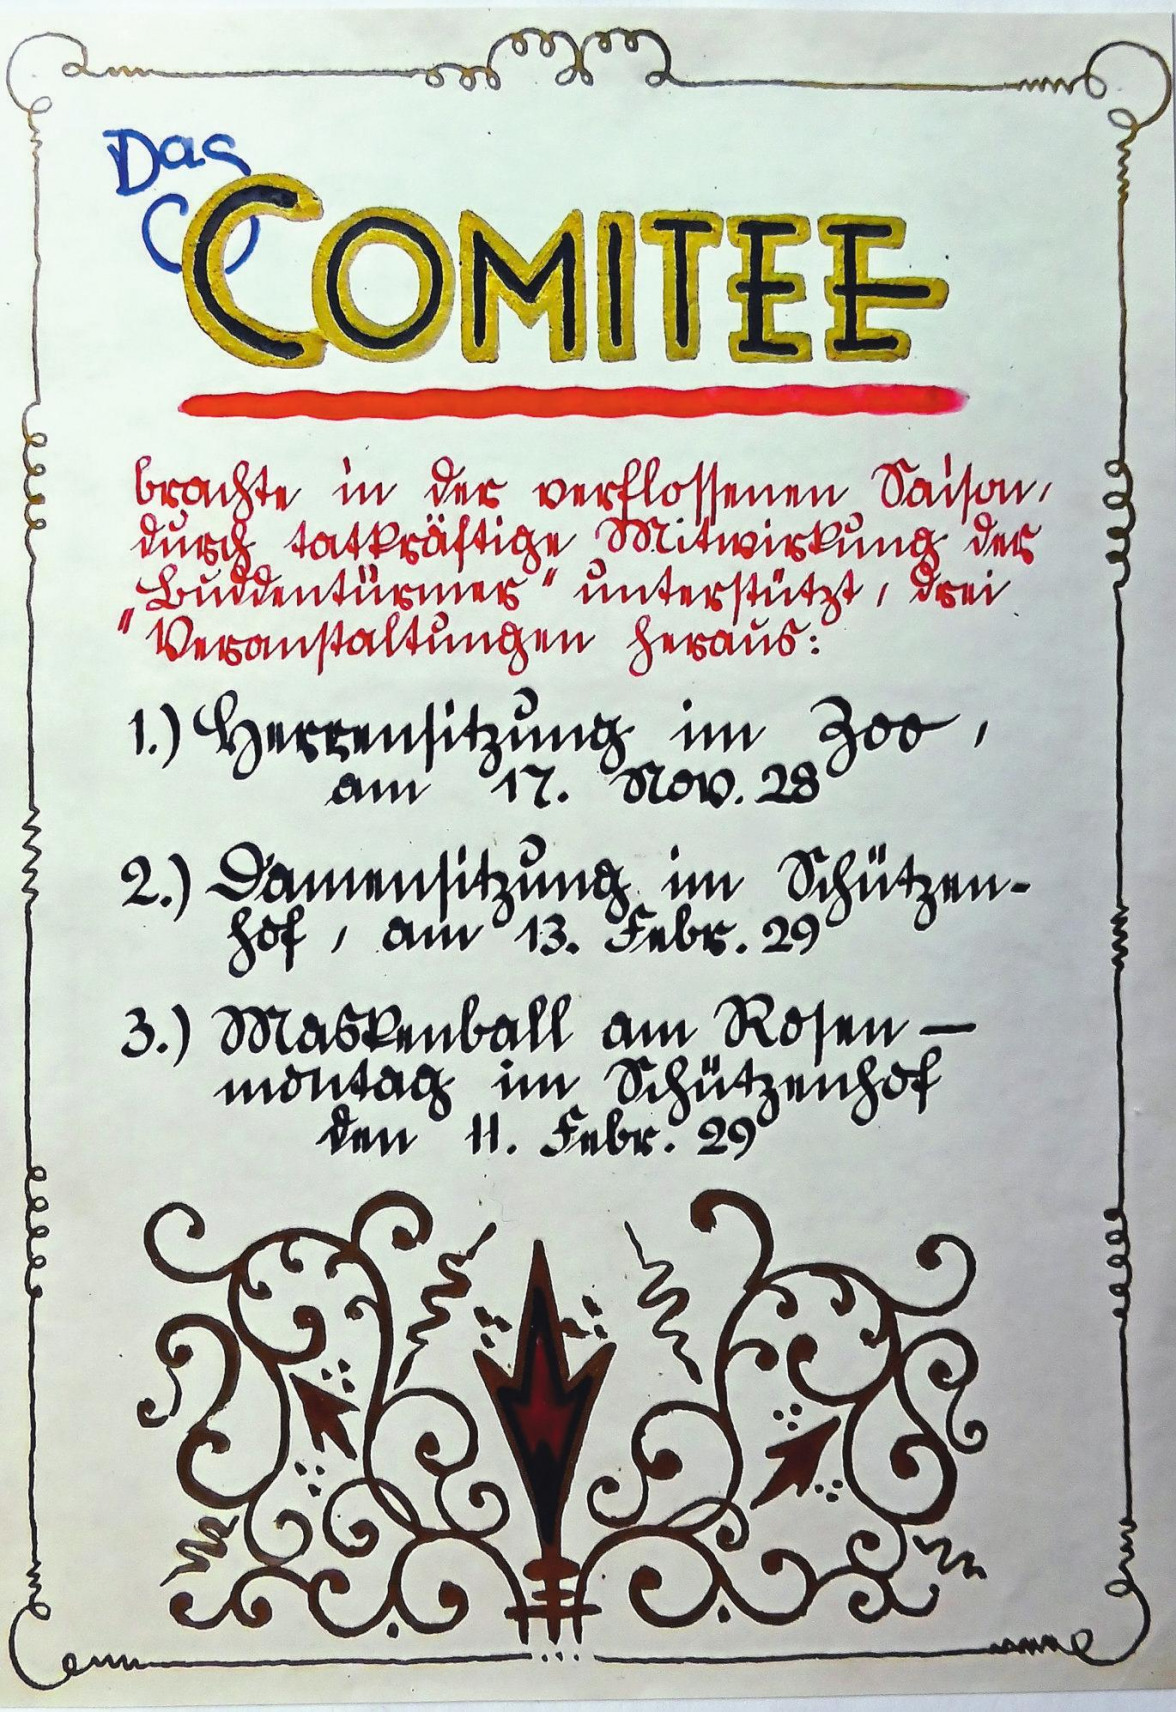 Das
COMITEE
brachte in der verflossenen Saison,
durch tatkräftige Mitwirkung der
"Buddentürmer" unterstützt, drei
Veranstaltungen heraus:
1.) Herrensitzung im Zoo,
am 17. Nov. 28
2.) Damensitzung im Schützen-
hof, am 13. Febr. 29
3.) Maskenball am Rosen-
montag im Schützenhof
den 11. Febr. 29